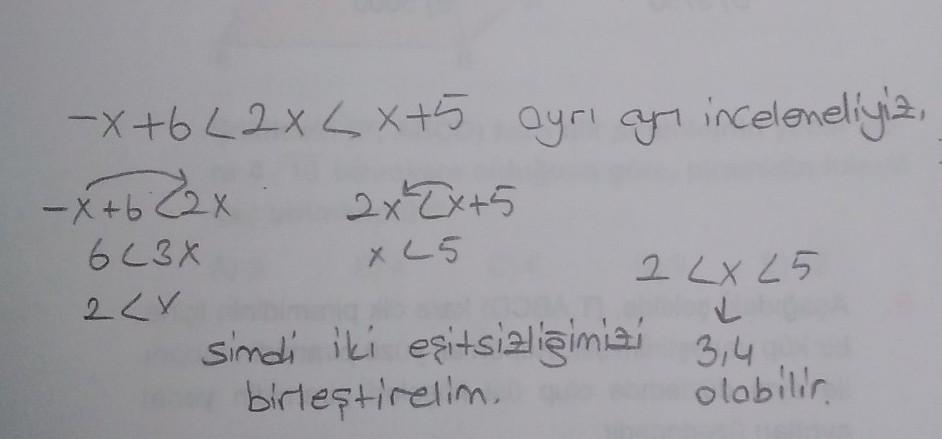 -x+6<2x<x+5 ayrı ayrı incelemeliyiz.
-x+6<2x 2x<x+5
6<3x x<5
2<x
2<x<5
↓
şimdi iki eşitsizliğimizi 3,4
birleştirelim. olabilir.